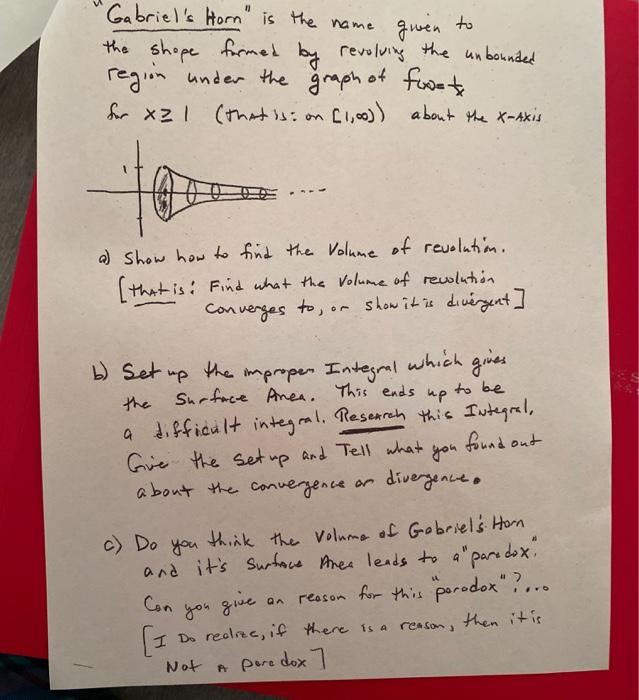 "Gabriel's Horn" is the name given to
the shape formed by revolving the unbounded
region under the graph of f(x)=1/x
for x≥1 (that is: on [1,∞)) about the x-Axis
1
a) Show how to find the Volume of revolution.
[That is: Find what the Volume of revolution
converges to, or show it is divergent]
b) Set up the improper Integral which gives
the Surface Area. This ends up to be
a difficult integral. Research this Integral,
Give the set up and Tell what you found out
about the convergence or divergence.
c) Do you think the Volume of Gabriel's Horn
and it's Surface Area leads to a "paradox".
Can you give an reason for this "paradox"?...
[I Do realize, if there is a reason, then it is
Not A paradox]